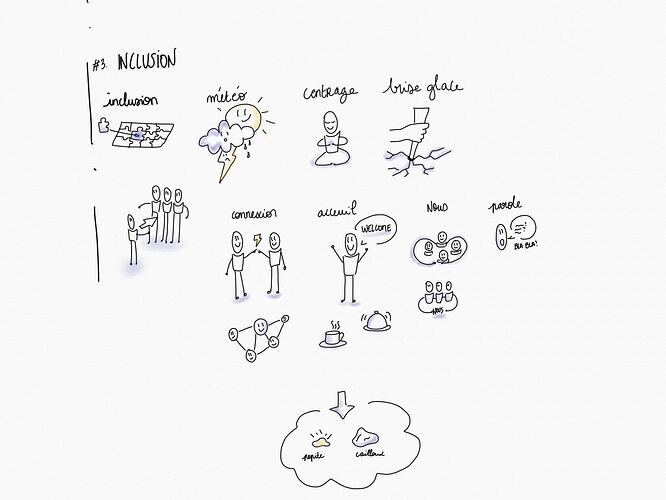 #3. INCLUSION
inclusion
météo
centrage
brise glace
connexion
acceuil
NOUS
parole
WELCOME
BLA BLA!
NOUS
pepite
caillou